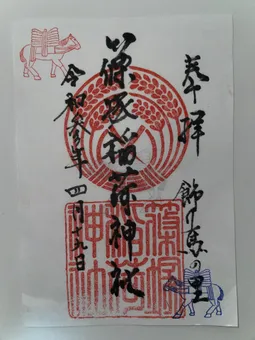 奉拝
飾り馬の里
篠塚稲荷神社
令和参年四月十五日
篠塚
稲荷
神社